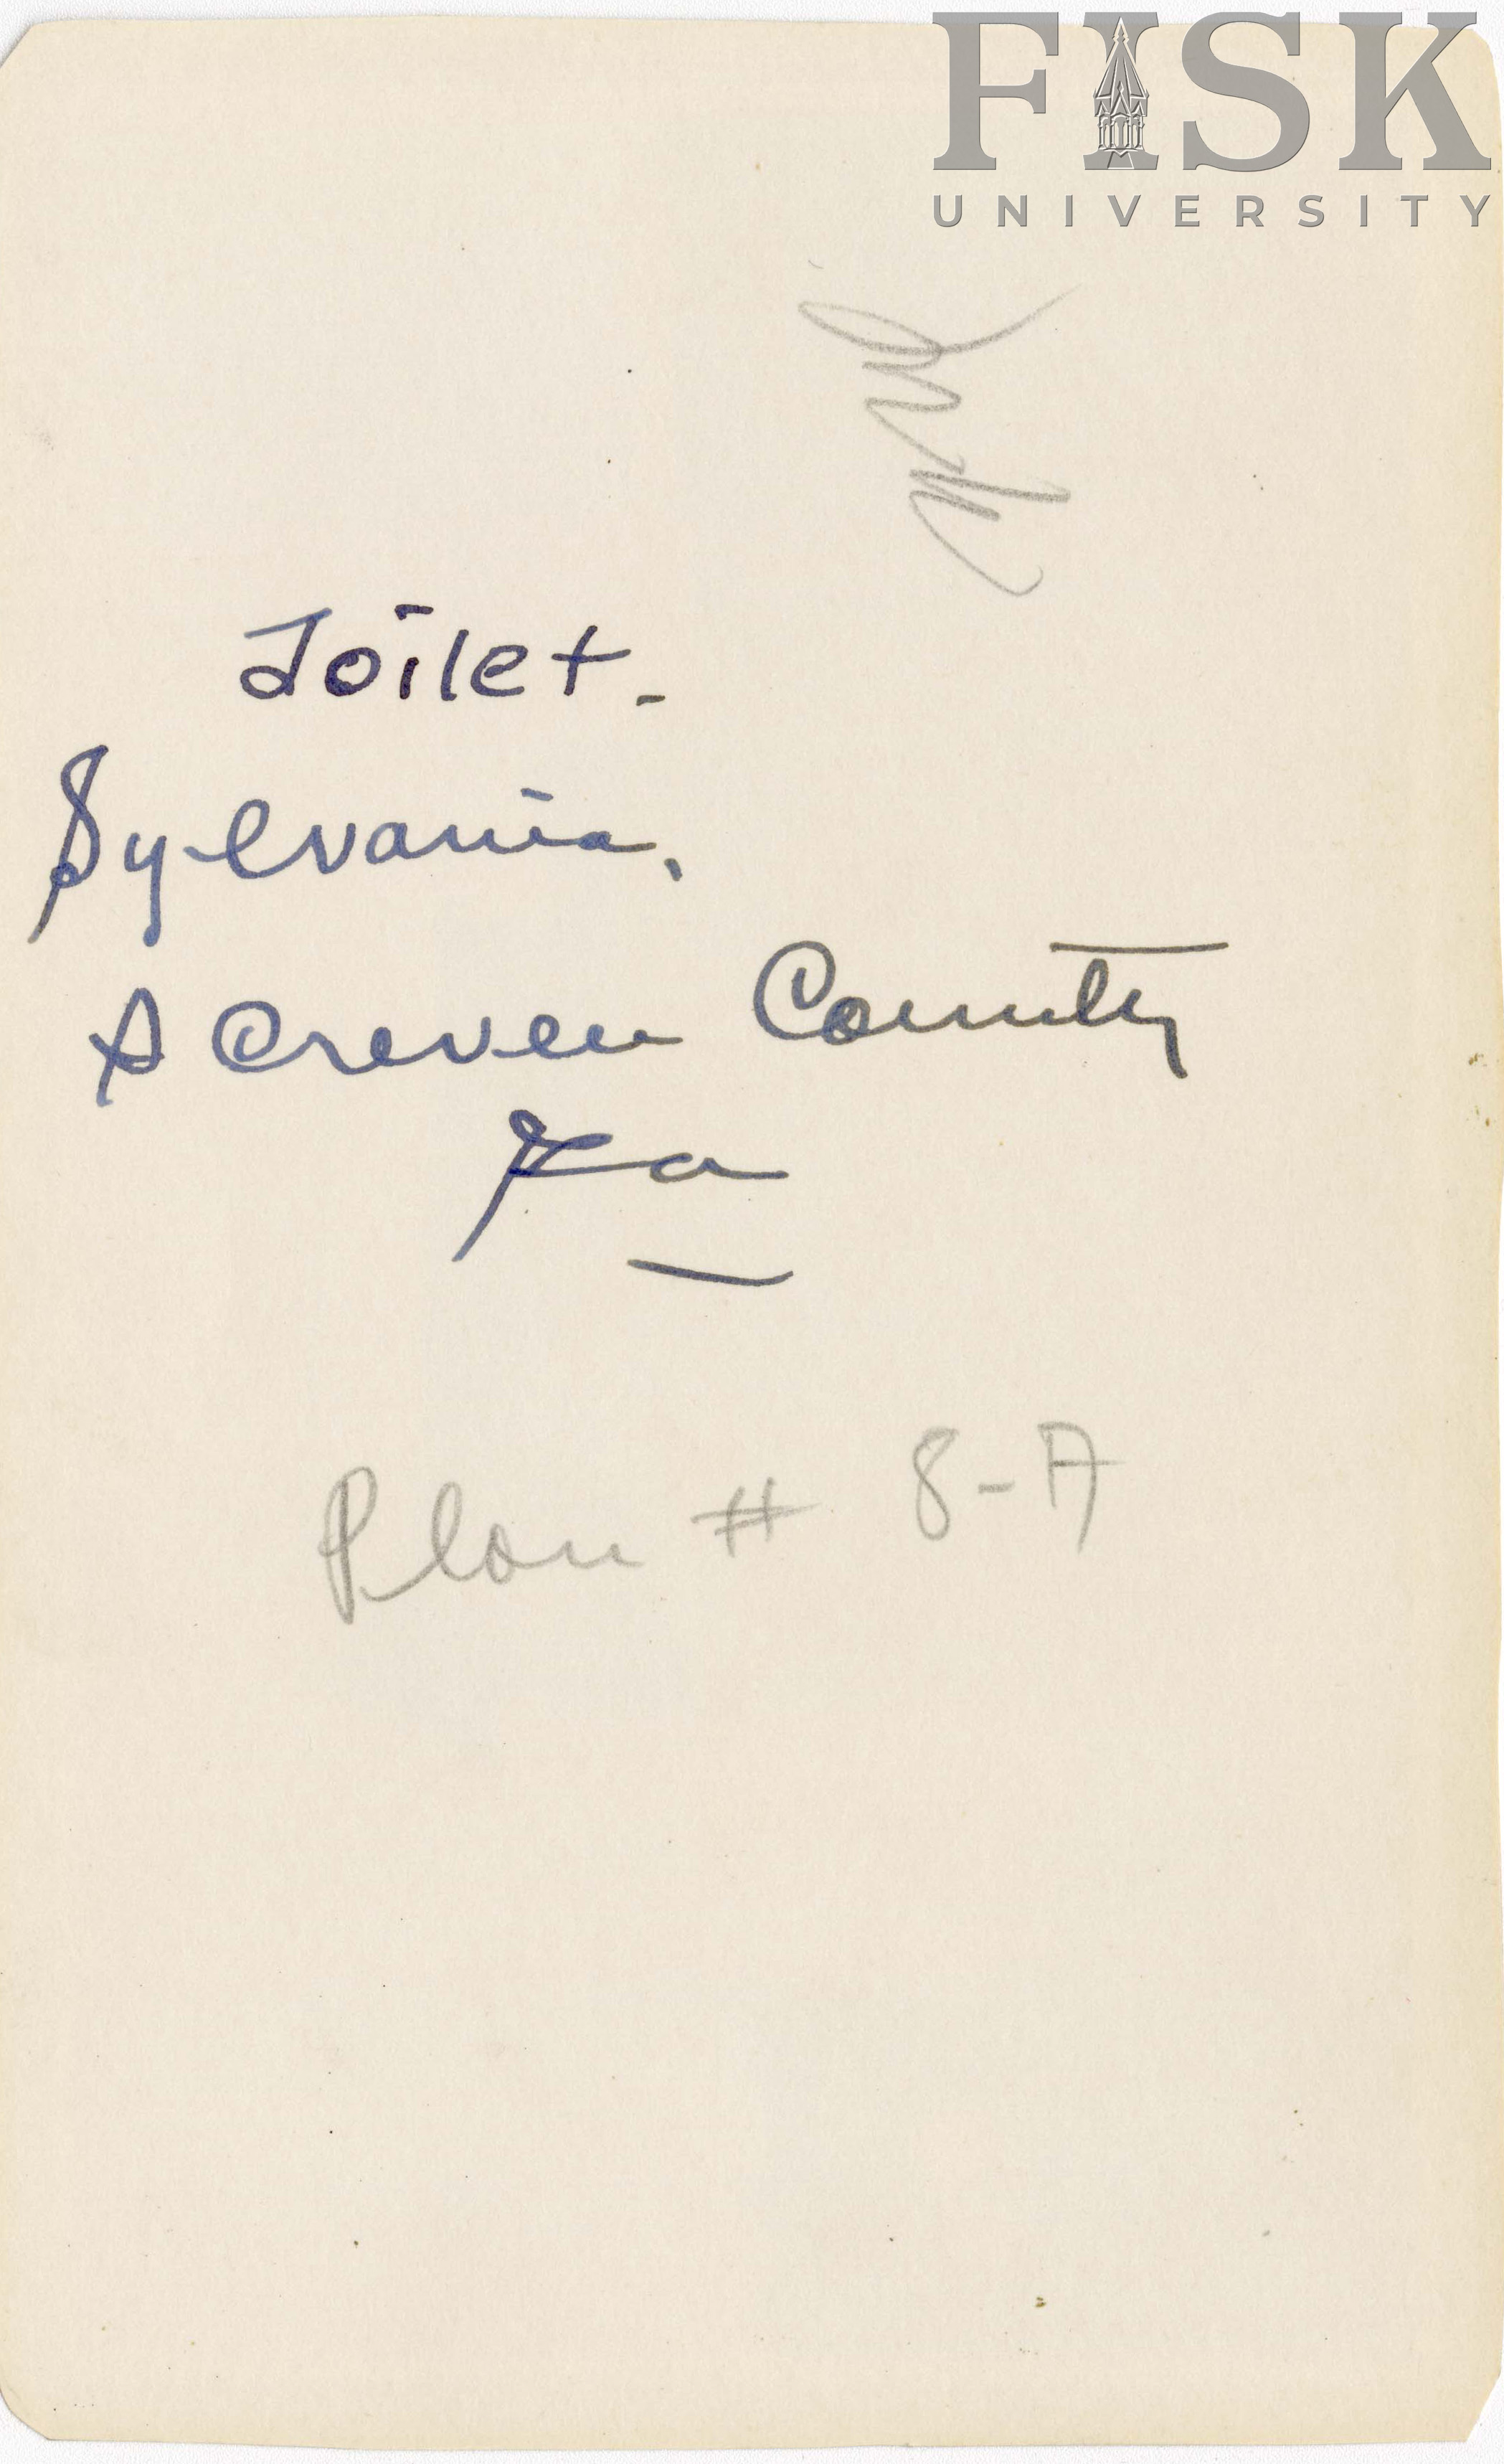 FISK
UNIVERSITY
Toilet.
Sylvania,
Screven County
Ga
Plan # 8-A